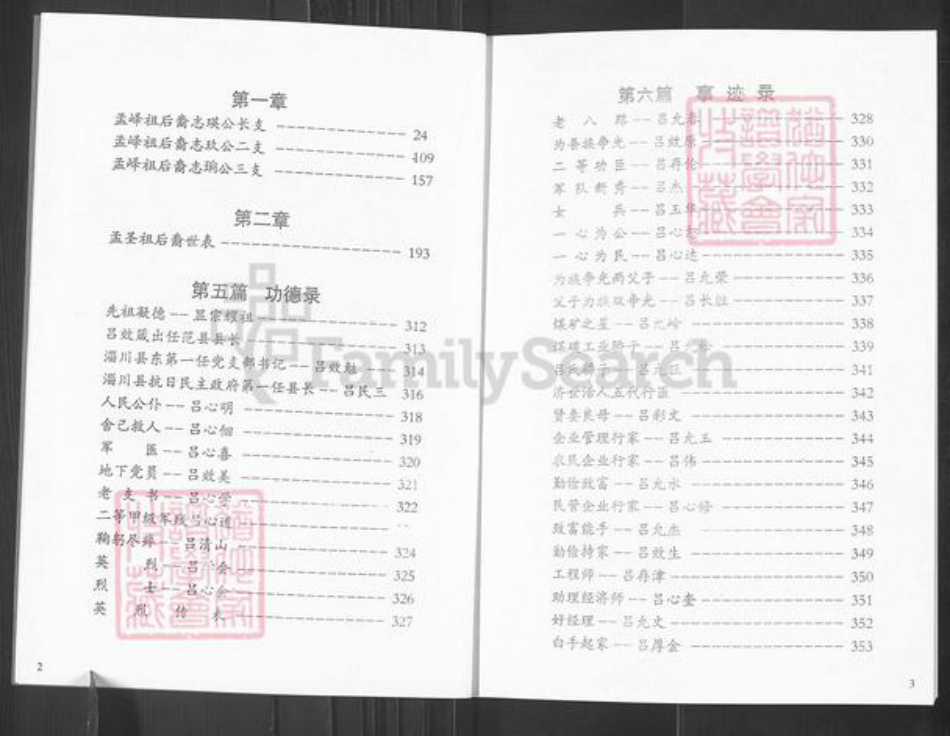 第一章
孟峄祖后裔志瑛公长支 24
孟峄祖后裔志玖公二支 109
孟峄祖后裔志珦公三支 157
第二章
孟圣祖后裔世表 193
第五篇 功德录
先祖凝德——显宗耀祖 312
吕效蕆出任范县县长 313
淄川县东第一任党支部书记——吕效 314
淄川县抗日民主政府第一任县长——吕民三 316
人民公仆——吕心明 318
舍己救人——吕心佃 319
军 医——吕心喜 320
地下党员——吕效美 321
老支书——吕心学 322
二等甲级军残吕心道
鞠躬尽瘁——吕清山 324
英 烈——吕 会 325
烈 士——吕心会 326
英烈传 327
2
第六篇 事迹录
老八路——吕允 328
为吾族争光——吕效 330
二等功臣——吕存 331
军队新秀——吕杰 332
女 兵——吕玉华 333
一心为公——吕心 334
一心为民——吕心达 335
为族争光两父子——吕允荣 336
父子为族双争光——吕长胜 337
煤矿之星——吕允岭 338
煤矿工业骄子——吕 339
吕氏 吕允 341
济世活人五代行医 342
贤妻良母——吕彩文 343
企业管理行家——吕允玉 344
农民企业行家——吕伟 345
勤俭致富——吕允水 346
民营企业行家——吕心修 347
致富能手——吕允杰 348
勤俭持家——吕效生 349
工程师——吕存津 350
助理经济师——吕心奎 351
好经理——吕允文 352
白手起家——吕厚金 353
3
FamilySearch